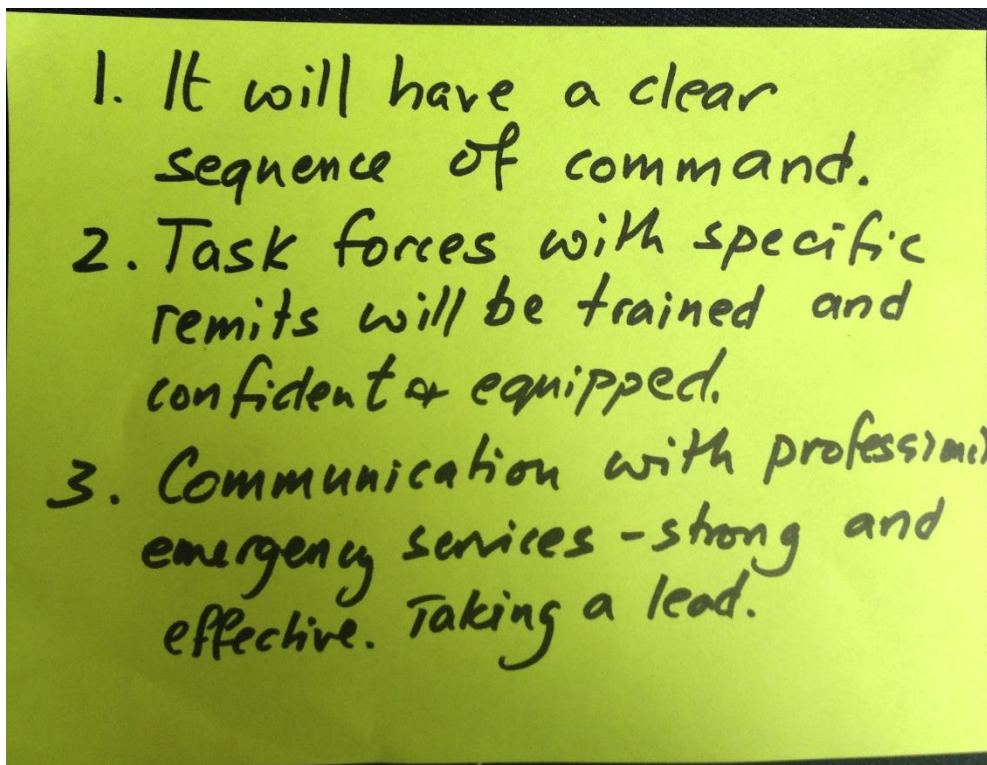 1. It will have a clear
sequence of command.
2. Task forces with specific
remits will be trained and
confident & equipped.
3. Communication with professional
emergency services - strong and
effective. Taking a lead.